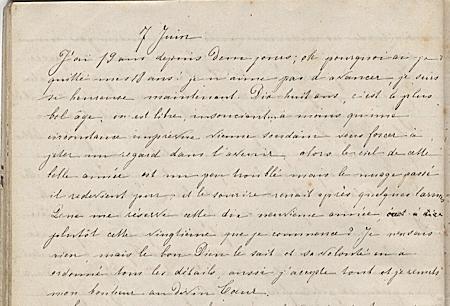 7 Juin
J'ai 19 ans depuis deux jours; oh pourquoi ai je
quitté mes 18 ans! je n'aime pas à avancer, je suis
si heureuse maintenant. Dix huit ans, c'est le plus
bel âge, on est libre, insouciant... à moins qu'une
circonstance imprévue vienne soudain vous forcer à
jeter un regard dans l'avenir alors le ciel de cette
belle année est un peu troublé mais le nuage passé
il redevient pur, et le sourire renait après quelques larmes
Que me réserve cette dix neuvième année, ou à dire
plutôt cette vingtième que je commence? Je n'en sais
rien, mais le bon Dieu le sait et sa volonté en a
ordonné tous les détails, aussi j'accepte tout et je remets
mon bonheur au divin Cœur.